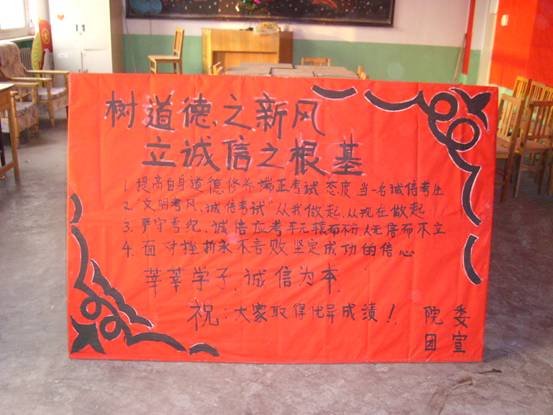 树道德之新风
立诚信之根基
1.提高自身道德修养端正考试态度当一名诚信考生
2."文明考风、诚信考试"从我做起、从现在做起
3.严守考纪、诚信应考年无粮而不人无信而不立
4.面对挫折来不言败坚定成功的信心
莘莘学子、诚信为本
祝:大家取得优异成绩!
院委
团宣